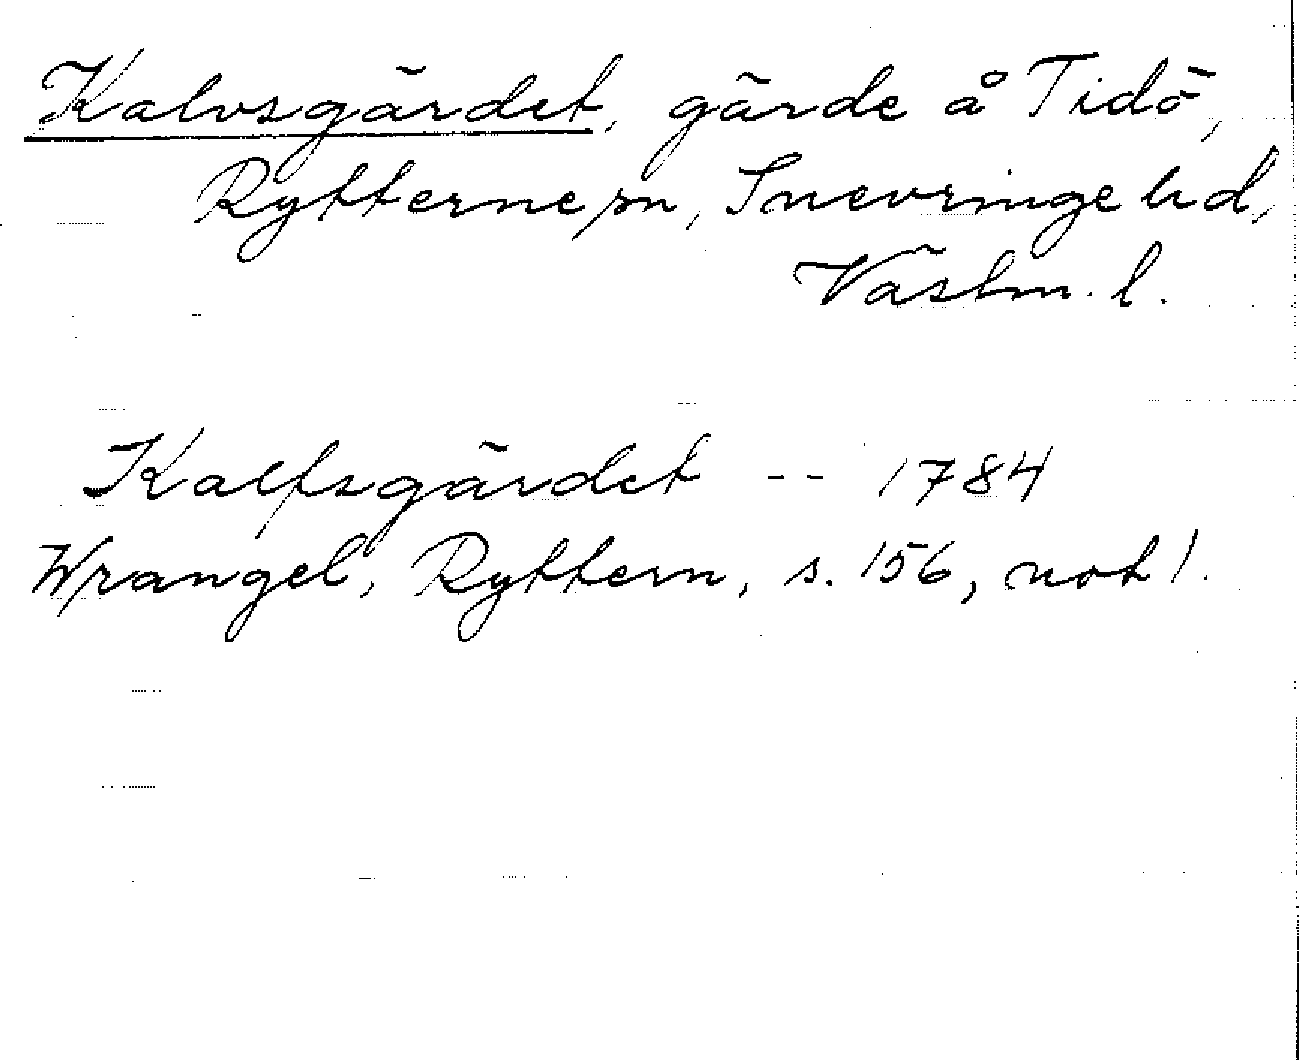 Kalvsgärdet, gärde å Tidö,
Rytterne sn, Snevringe hd,
Västm. l.
Kalfsgärdet -- 1784
Wrangel, Ryttern, s. 156, not 1.